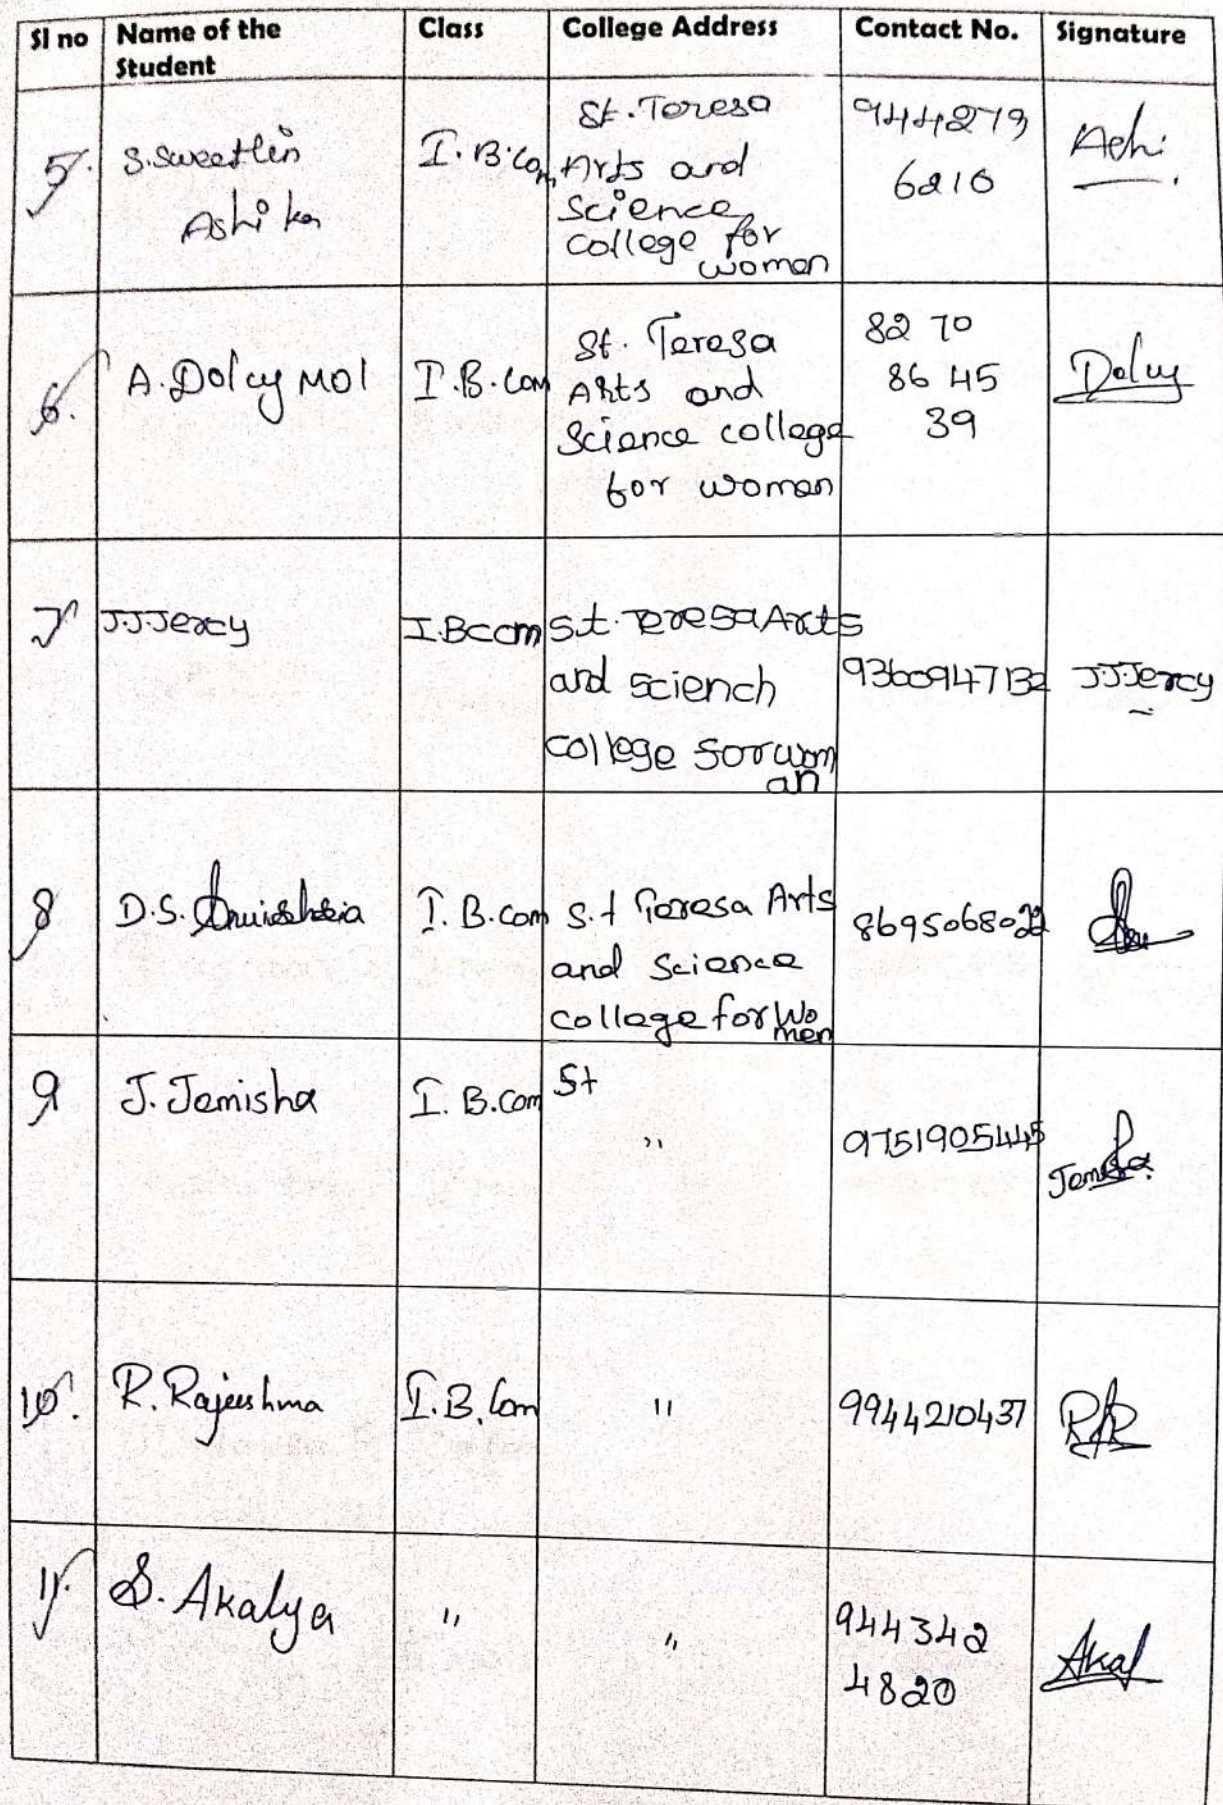 Sl no Name of the Student Class College Address Contact No. Signature
5. S. Sweetlin Ashika I. B.Com, St. Teresa Arts and Science College for women 944279 6210 Ashi
6. A. Dolcy Mol I.B.Com St. Teresa Arts and Science college for women 82 70 86 45 39 Dolcy
7 J.J.Jercy I.Bcom S.t. Teresa Arts and sciench college for wom an 9360947132 J.J.Jercy
8 D.S. I. B.com S.t Teresa Arts and Science college for Wo men 8695068022
9 J. Jemisha I. B.Com St " 9751905445
10. R. Rajeeshma I.B.Com " 9944210437
11. S. Akalya " " 944342 4820 Akal